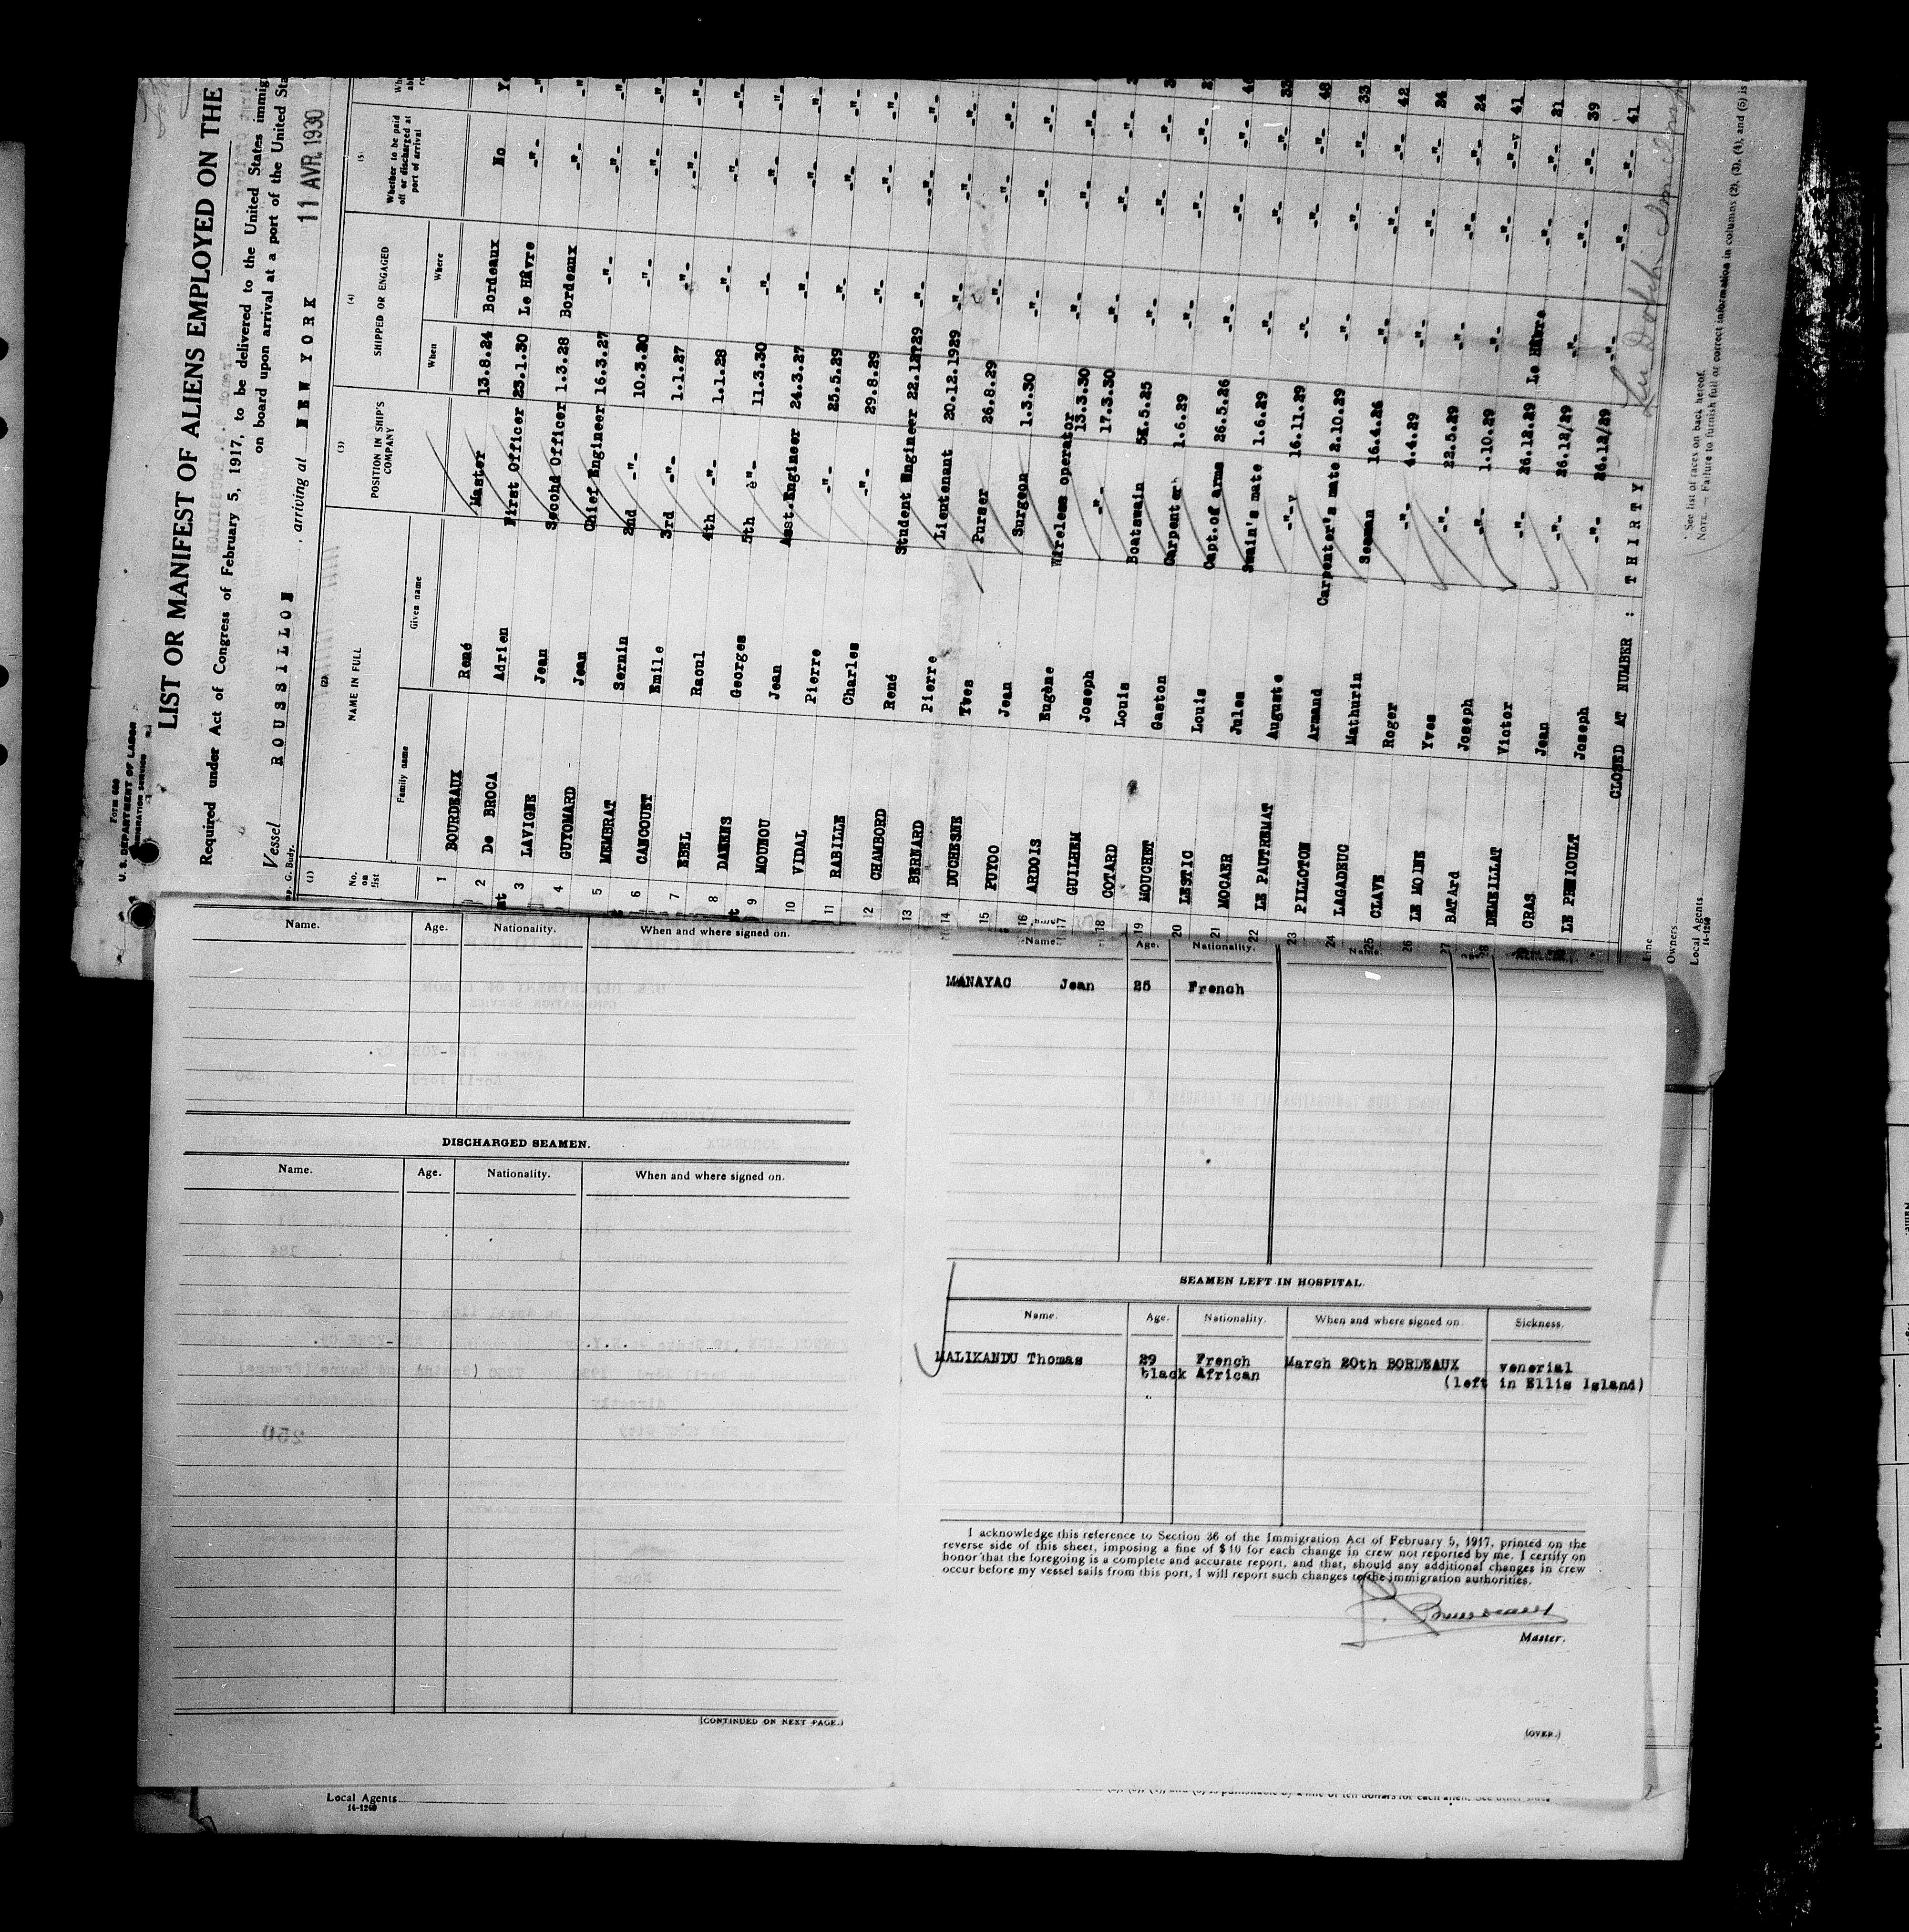 FORM 680
U. S. DEPARTMENT OF LABOR
IMMIGRATION SERVICE
LIST OR MANIFEST OF ALIENS EMPLOYED ON THE
Required under Act of Congress of February 5, 1917, to be delivered to the United States
on board upon arrival at a port of the United
Vessel ROUSSILLON , arriving at NEW YORK 11 AVR. 1930
(1) (2) (3) (4) (5)
No. on list NAME IN FULL POSITION IN SHIP'S COMPANY SHIPPED OR ENGAGED Whether to be paid off or discharged at port of arrival
Family name Given name When Where
1 BOURDEAUX René Master 13.8.24 Bordeaux No
2 De BROCA Adrien First Officer 23.1.30 Le Hâvre -"-
3 LAVIGNE Jean Second Officer 1.3.28 Bordeaux -"-
4 GUYOMARD Jean Chief Engineer 16.3.27 -"- -"-
5 MEMBRAT Sernin 2nd -"- 10.3.30 -"- -"-
6 CANCOUET Emile 3rd -"- 1.1.27 -"- -"-
7 EBEL Raoul 4th -"- 1.1.28 -"- -"-
8 DAKENS Georges 5th è"- 11.3.30 -"- -"-
9 MOUNOU Jean Asst.Engineer 24.3.27 -"- -"-
10 VIDAL Pierre -"- 25.5.29 -"- -"-
11 RABILLE Charles -"- 29.8.29 -"- -"-
12 CHAMBORD René Student Engineer -"- -"-
13 BERNARD Pierre Lieutenant 20.12.1929 -"- -"-
14 DUCHESNE Yves Purser 26.8.29 -"- -"-
15 PUYOO Jean Surgeon 1.3.30 -"- -"-
16 ARDOIS Eugène Wireless operator 13.3.30 -"- -"-
17 GUILHEM Joseph -"- 17.3.30 -"- -"-
18 COTARD Louis Boatswain -"- -"-
19 MOUCHET Gaston Carpenter 1.6.29 -"- -"-
20 LESTIC Louis Capt.of arms 26.5.26 -"- -"-
21 MOCAER Jules Swain's mate 1.6.29 -"- -"-
22 LE PAUTREMAT Auguste -"- 16.11.29 -"- -"-
23 PILLOTON Armand Carpenter's mate 2.10.29 -"- -"-
24 LAGADEUC Mathurin Seaman 16.4.26 -"- -"-
25 CLAVE Roger -"- 4.4.29 -"- -"-
26 LE MOINE Yves -"- 22.5.29 -"- -"-
27 BATArd Joseph -"- 1.10.29 -"- -"-
28 DEMEILLAT Victor -"- 26.12.29 Le Hâvre -"-
CRAS Jean -"- 26.12/29 -"- -"-
LE PENIOULT Joseph -"- 26.12/29 -"- -"-
CLOSED AT NUMBER : THIRTY
Owners
Local Agents
14-1240
* See list of races on back hereof.
NOTE. — Failure to furnish full or correct information in columns (2), (3), (4), and (5) is
Name. Age. Nationality. When and where signed on.
DISCHARGED SEAMEN.
Name. Age. Nationality. When and where signed on.
(CONTINUED ON NEXT PAGE.)
Name. Age. Nationality. Name.
MANAYAC Jean 25 French
SEAMEN LEFT IN HOSPITAL.
Name. Age. Nationality. When and where signed on Sickness.
MALIKANDU Thomas 29 French March 20th BORDEAUX venerial
black African (left in Ellis Island)
I acknowledge this reference to Section 36 of the Immigration Act of February 5, 1917, printed on the
reverse side of this sheet, imposing a fine of $10 for each change in crew not reported by me. I certify on
honor that the foregoing is a complete and accurate report, and that, should any additional changes in crew
occur before my vessel sails from this port, I will report such changes to the immigration authorities.
Master.
(OVER.)
Local Agents
14-1240